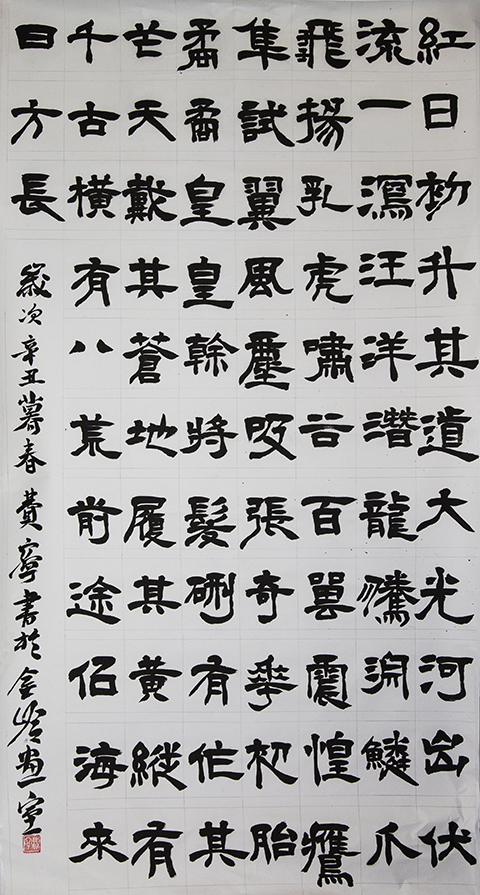 紅日初升其道大光河出伏
流一瀉汪洋潛龍騰淵鱗爪
飛揚乳虎嘯谷百嘼震惶鷹
隼試翼風塵吸張奇華初胎
矞矞皇皇幹將髮硎有作其
芒天戴其蒼地履其黃縱有
千古橫有八荒前途佀海來
日方長
歲次辛丑暮春費寧書於金陵